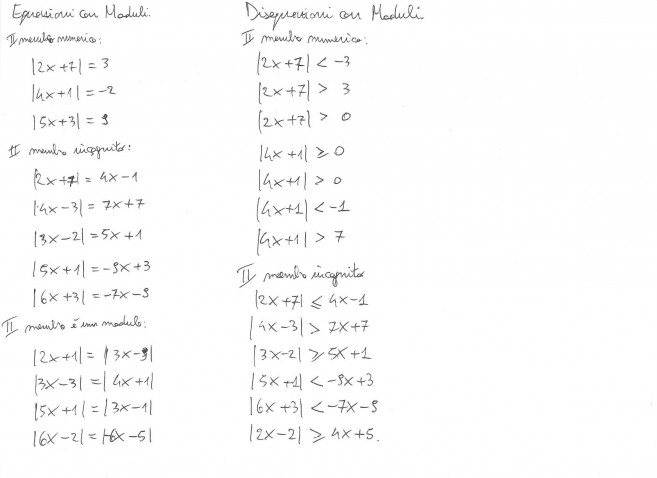 Equazioni con Moduli.
II membro numerico:
|2x+7| = 3
|4x+1| = -2
|5x+3| = 9
II membro incognito:
|2x+7| = 4x-1
|4x-3| = 7x+7
|3x-2| = 5x+1
|5x+1| = -9x+3
|6x+3| = -7x-9
II membro è un modulo:
|2x+1| = |3x-9|
|3x-3| = |4x+1|
|5x+1| = |3x-1|
|6x-2| = |-6x-5|
Disequazioni con Moduli
II membro numerico:
|2x+7| < -3
|2x+7| > 3
|2x+7| > 0
|4x+1| ≥ 0
|4x+1| > 0
|4x+1| < -1
|4x+1| > 7
II membro incognito
|2x+7| ≤ 4x-1
|4x-3| > 7x+7
|3x-2| ≥ 5x+1
|5x+1| < -9x+3
|6x+3| < -7x-9
|2x-2| ≥ 4x+5.